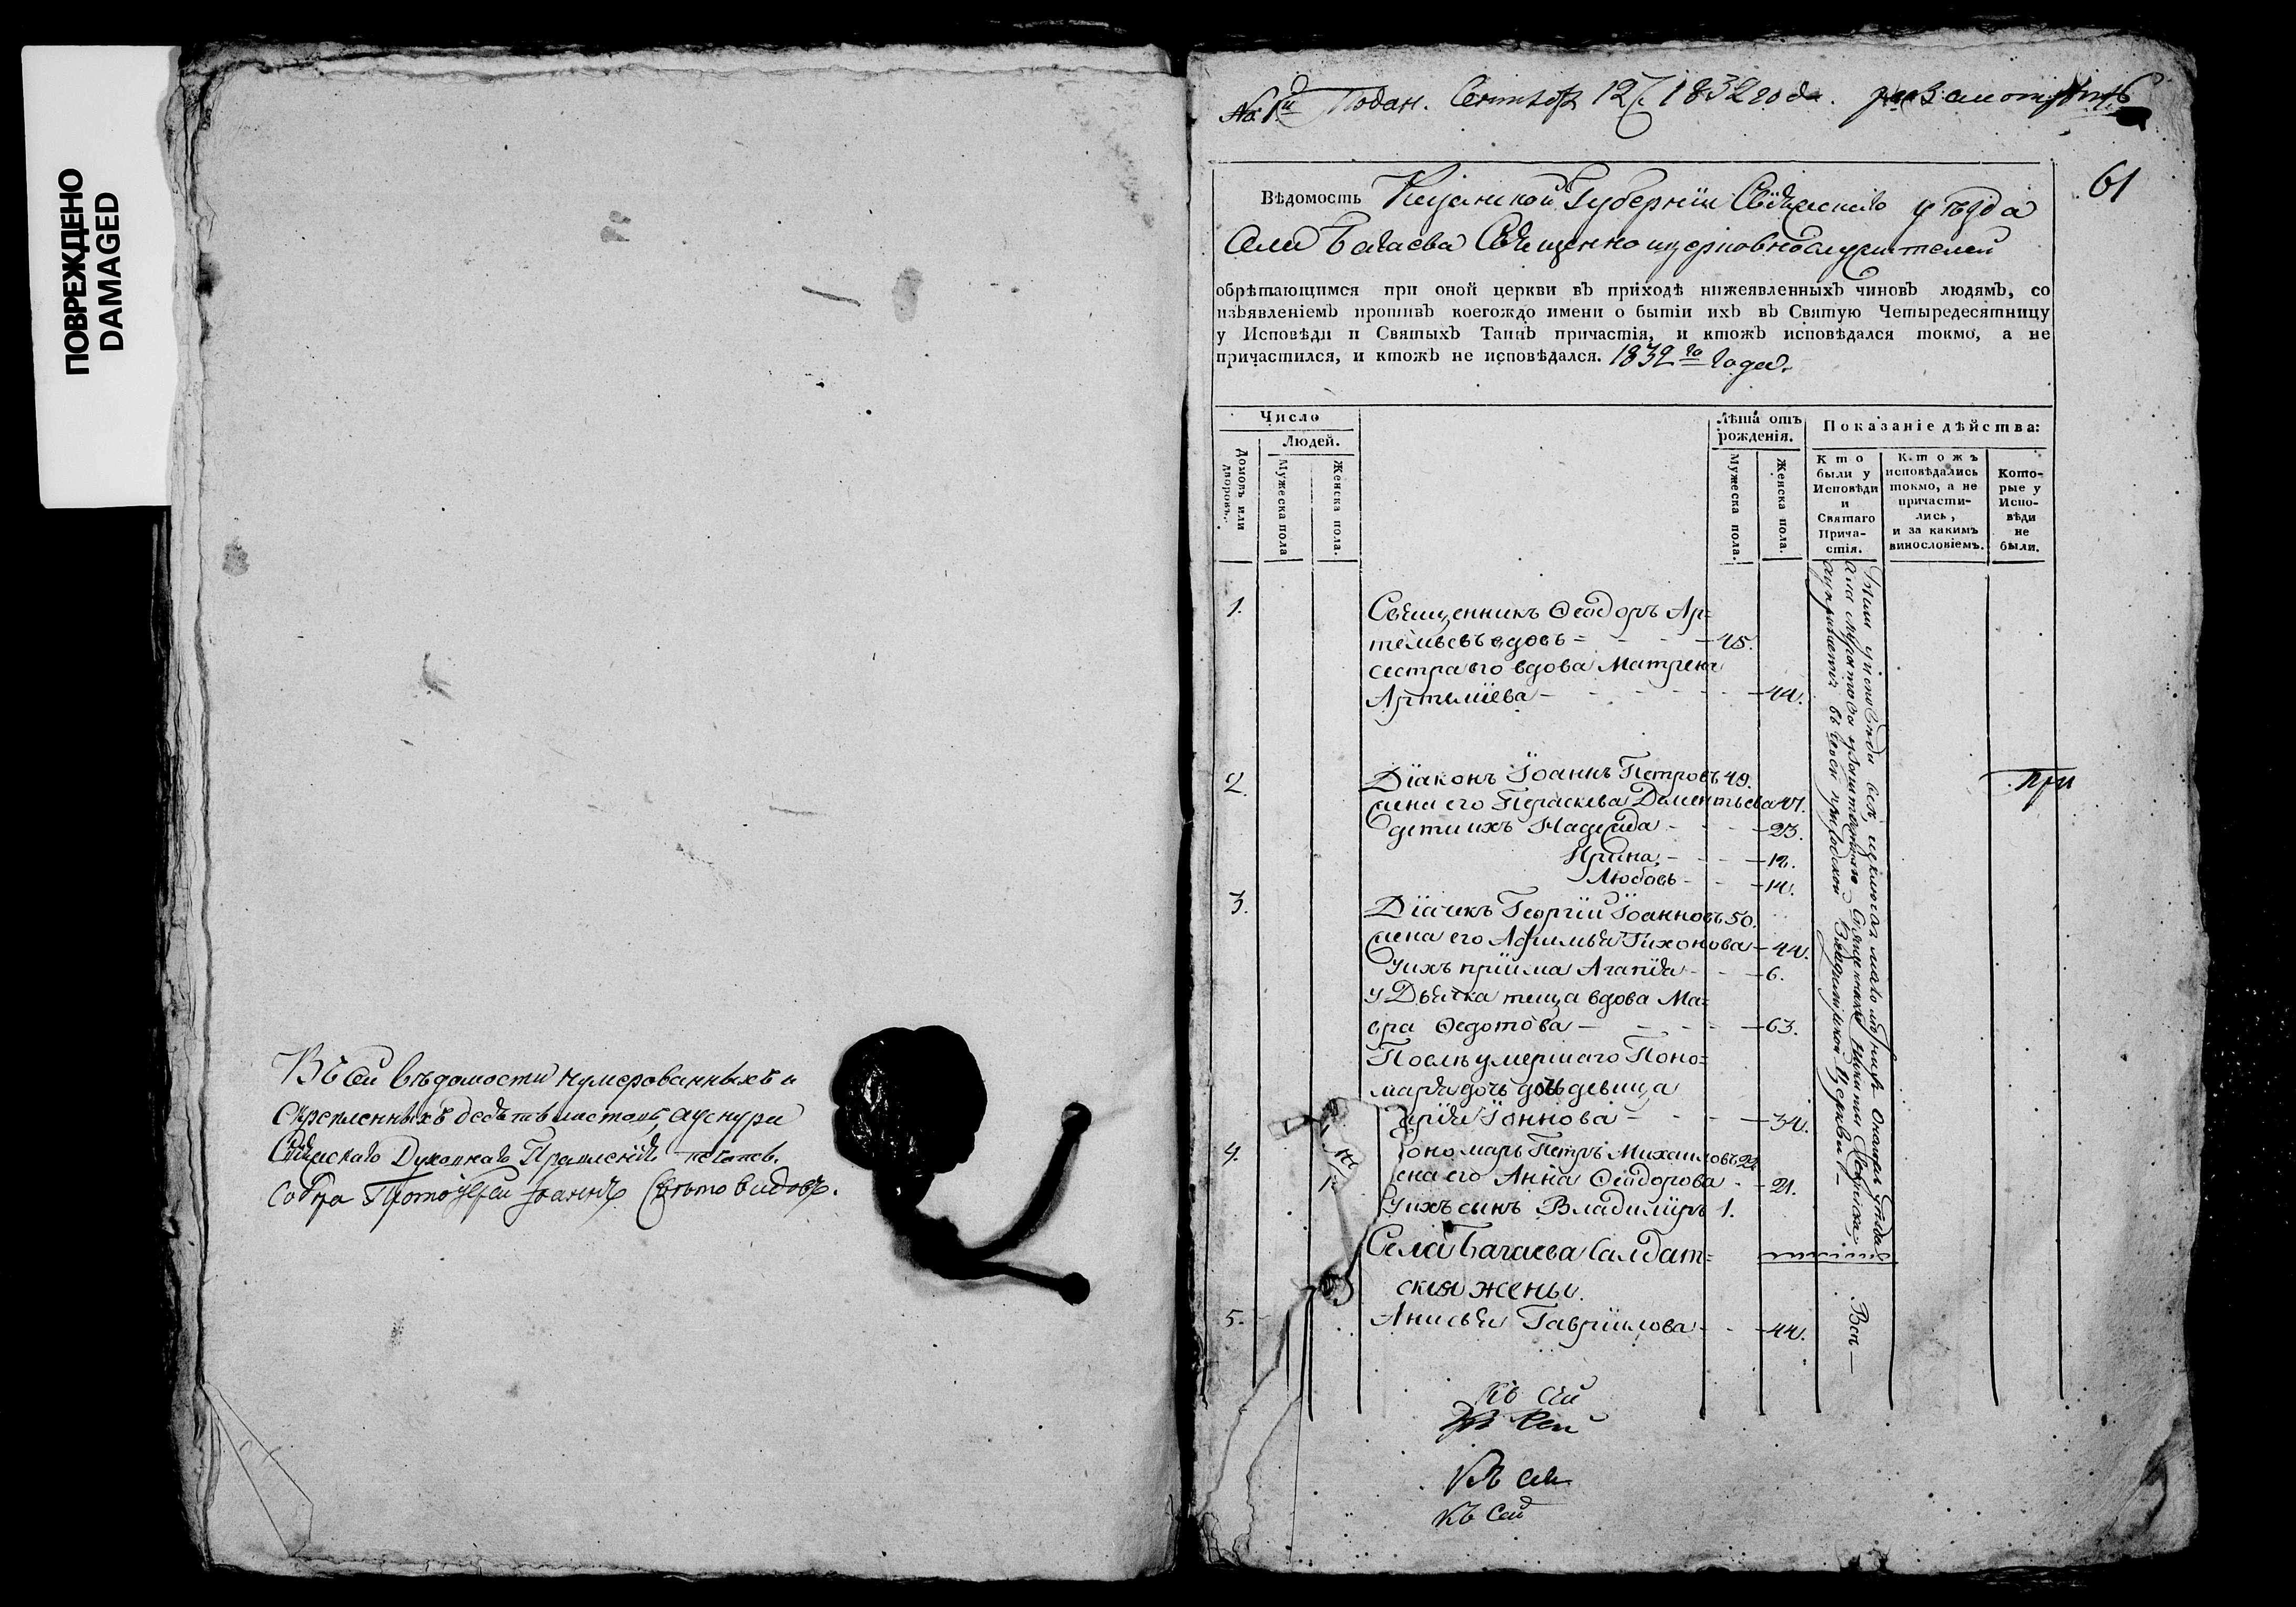 ПОВРЕЖДЕНО
DAMAGED
Въ сей вѣдомости нумерованныхъ и
скрепленныхъ десѧть листовъ, а у снура
Свіяжскаго Духовнаго Правленія печать.
Протоіерей Іоаннъ Свѣтовидовъ.
Подан. Сентября 12 1832 года.
61
Вѣдомость Казанской Губерніи Свіяжскаго уѣзда
Села Бачаева Священно церковнослужителей
обрѣтающимся при оной церкви въ приходѣ нижеявленныхъ чиновъ людямъ, со
изъявленіемъ противъ коегождо имени о бытіи ихъ въ Святую Четыредесятницу
у Исповѣди и Святыхъ Таинъ причастія, и ктожъ исповѣдался токмо, а не
причастился, и ктожъ не исповѣдался. 1832го года.
Число
Людей.
Домовъ или дворовъ.
Мужеска пола
Женска пола.
Лѣта отъ
рожденія.
Мужеска пола.
Женска пола.
Показаніе дѣйства:
Кто
были у
Исповѣди
и
Святаго
Прича-
стія.
Ктожъ
исповѣдались
токмо, а не
причасти-
лись,
и за какимъ
винословіемъ.
Кото-
рые у
Испо-
вѣди
не
были.
1. Священникъ Ѳеодоръ Ар=
темьевъ вдовъ - 45.
сестра его вдова Матрена
Артеміева - 44.
2. Діаконъ Іоаннъ Петровъ 49.
жена его Параскева Дементьева 47.
дети ихъ Надежда - 23.
Ирина - 18.
Любовь - 14.
при
3. Діачекъ Георгій Іоанновъ 50.
жена его Афимья Тихонова - 44.
у ихъ пріима Агапіа - 6.
у Дьячка теща вдова Ма=
вра Ѳедотова - 63.
После умершаго Поно=
маря дочь девица
Іоннова - 34.
4. Пономарь Петръ Михаиловъ 22.
жена его Анна Ѳеодорова - 21.
у ихъ сынъ Владиміръ 1.
Села Бачаева Салдат=
скія жены.
5. Анисья Гаврилова - 44.
Всѣ
Къ сей
Къ сей
Къ сей
Къ сей